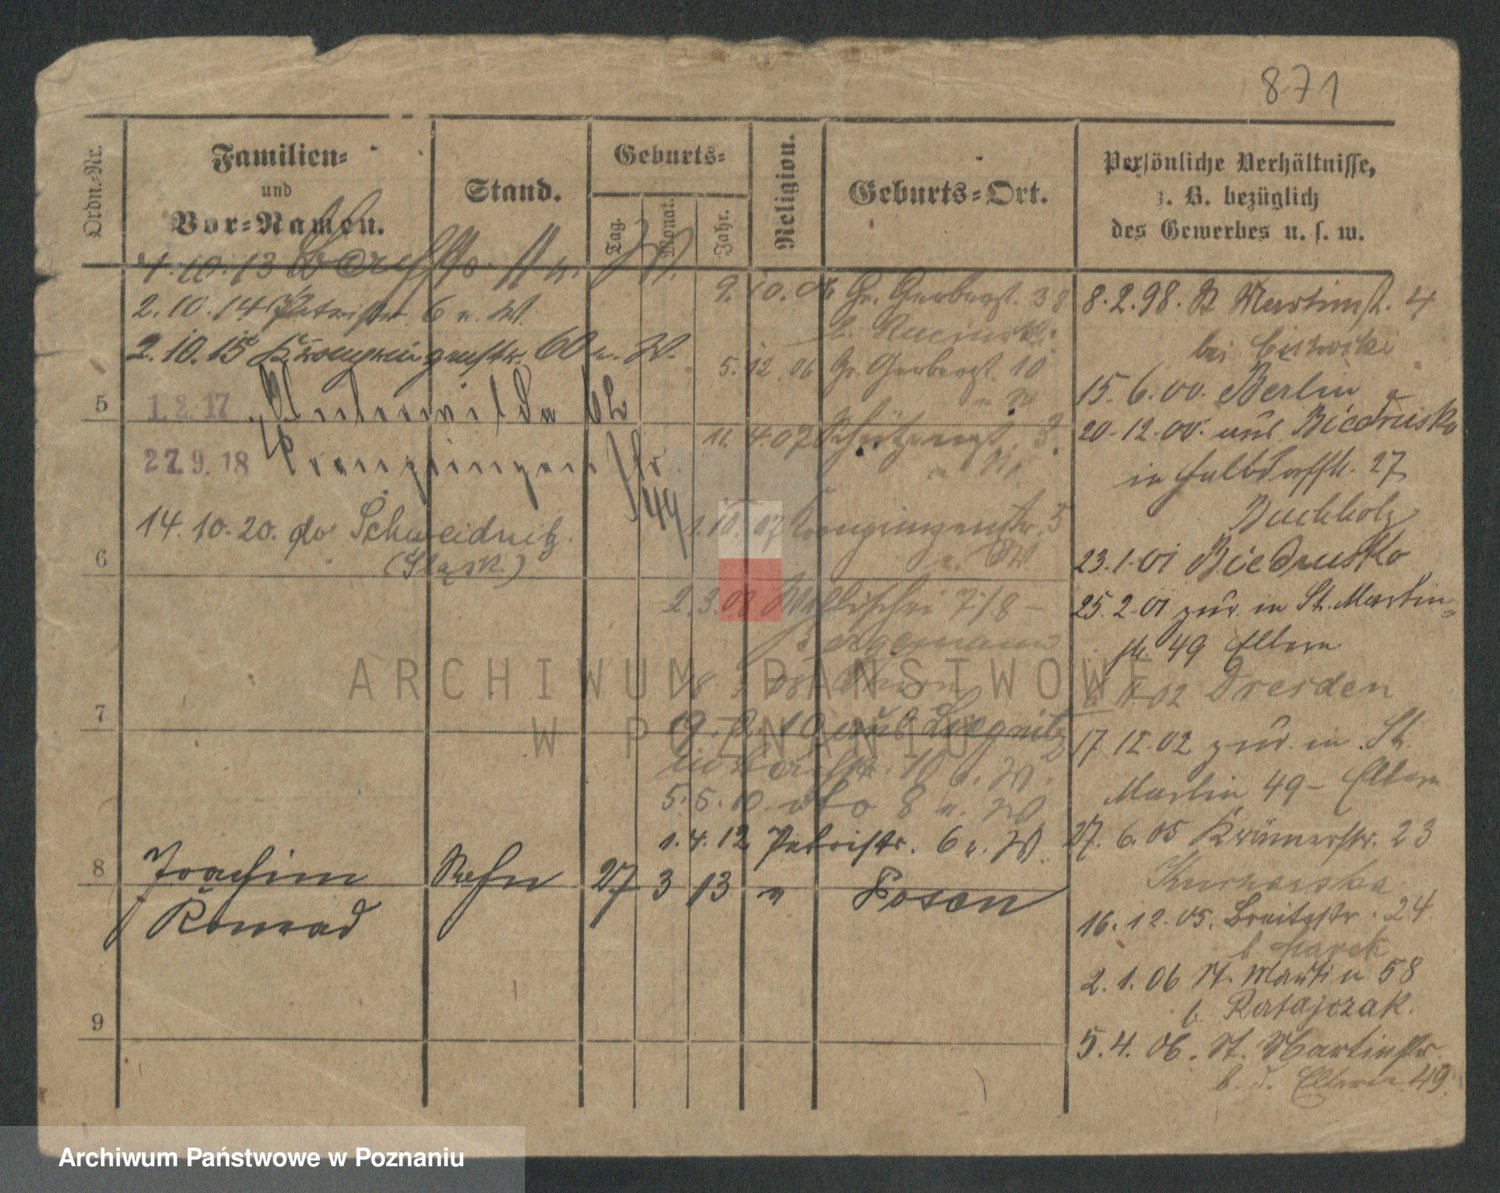 871
Ordn.-Nr.
Familien-
und
Vor-Namen.
Stand.
Geburts-
Tag.
Monat.
Jahr.
Religion.
Geburts-Ort.
Persönliche Verhältnisse,
z. B. bezüglich
des Gewerbes u. s. w.
4.10.13
2.10.14 Petristr. 6 u. W.
2.10.15 60 u. W.
5
1.2.17 Unterwilda
27.9.18
14.10.20. do Schweidnitz
(Śląsk.)
6
7
8
Joachim Sohn 27 3 13 " Posen
Konrad
9
9. 10. 06 Gr. Gerberst. 38
5. 12. 06 Gr. Gerberst. 10
u W
11. 4. 07 Schützenst. 3.
1. 10. 07
u. W
2. 3. 08 Wallischei 7/8 -
Bergemann
19. 10 aus Liegnitz
10 u. W.
5. 5. 10. do 8 u. W
1. 4. 12 Petristr. 6 u. W.
8. 2. 98. St Martinst. 4
bei
15. 6. 00. Berlin
20. 12. 00. aus Biedrusko
in Halbdorfstr. 27
Buchholz
23. 1. 01 Biedrusko
25. 2. 01 zur. in St. Martin-
str. 49 Eltern
02 Dresden
17. 12. 02 zur. in St.
Martin 49 - Eltern
27. 6. 05 Krämerstr. 23
Kucharska
16. 12. 05. Breitestr. 24
b. Marek
2. 1. 06 St. Martin 58
b. Ratajczak.
5. 4. 06. St. Martinstr.
b. d. Eltern 49.
ARCHIWUM PAŃSTWOWE
W POZNANIU
Archiwum Państwowe w Poznaniu